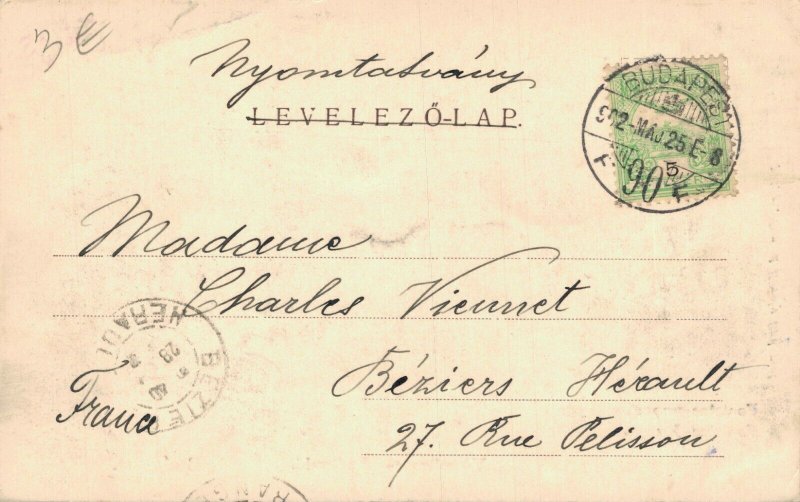 3 €
Nyomtatvány
LEVELEZŐ-LAP.
BUDAPEST
902-MÁJ.25.E-8
90 5
F. F.
Madame
Charles Viennet
Béziers Hérault
27. Rue Pelisson
France
BEZIERS
HERAULT
28